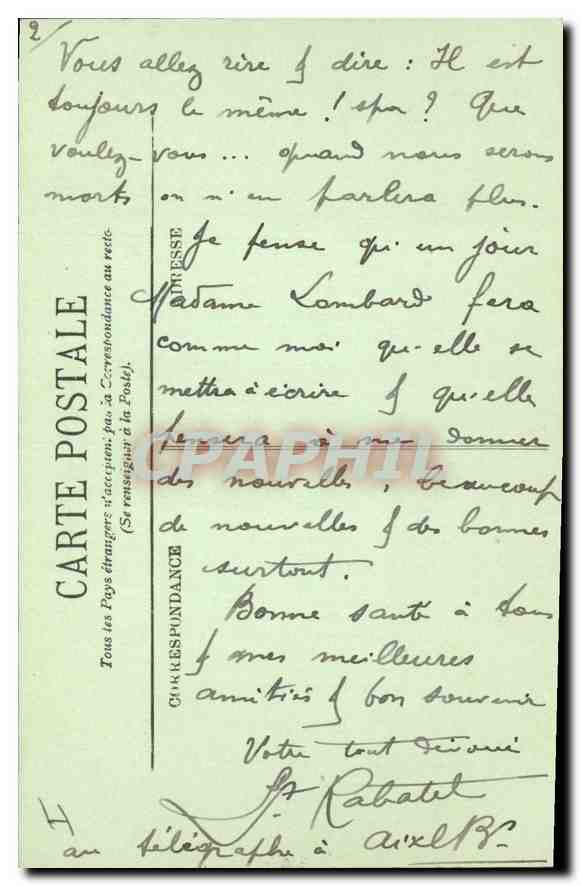 2/
Vous allez rire & dire : Il est
toujours le même ! spa ? Que
voulez-vous ... quand nous serons
morts on n'en parlera plus.
Je pense qu'un jour
Madame Lombard fera
comme moi qu'elle se
mettra à écrire & qu'elle
pensera à me donner
des nouvelles, beaucoup
de nouvelles & des bonnes
surtout.
Bonne santé à tous
& mes meilleures
amitiés & bon souvenir
Votre tout dévoué
Rabatel
au télégraphe à Aix l B^s
CARTE POSTALE
Tous les Pays étrangers n'acceptent pas la Correspondance au recto
(Se renseigner à la Poste).
CORRESPONDANCE
ADRESSE
CPAPHIL